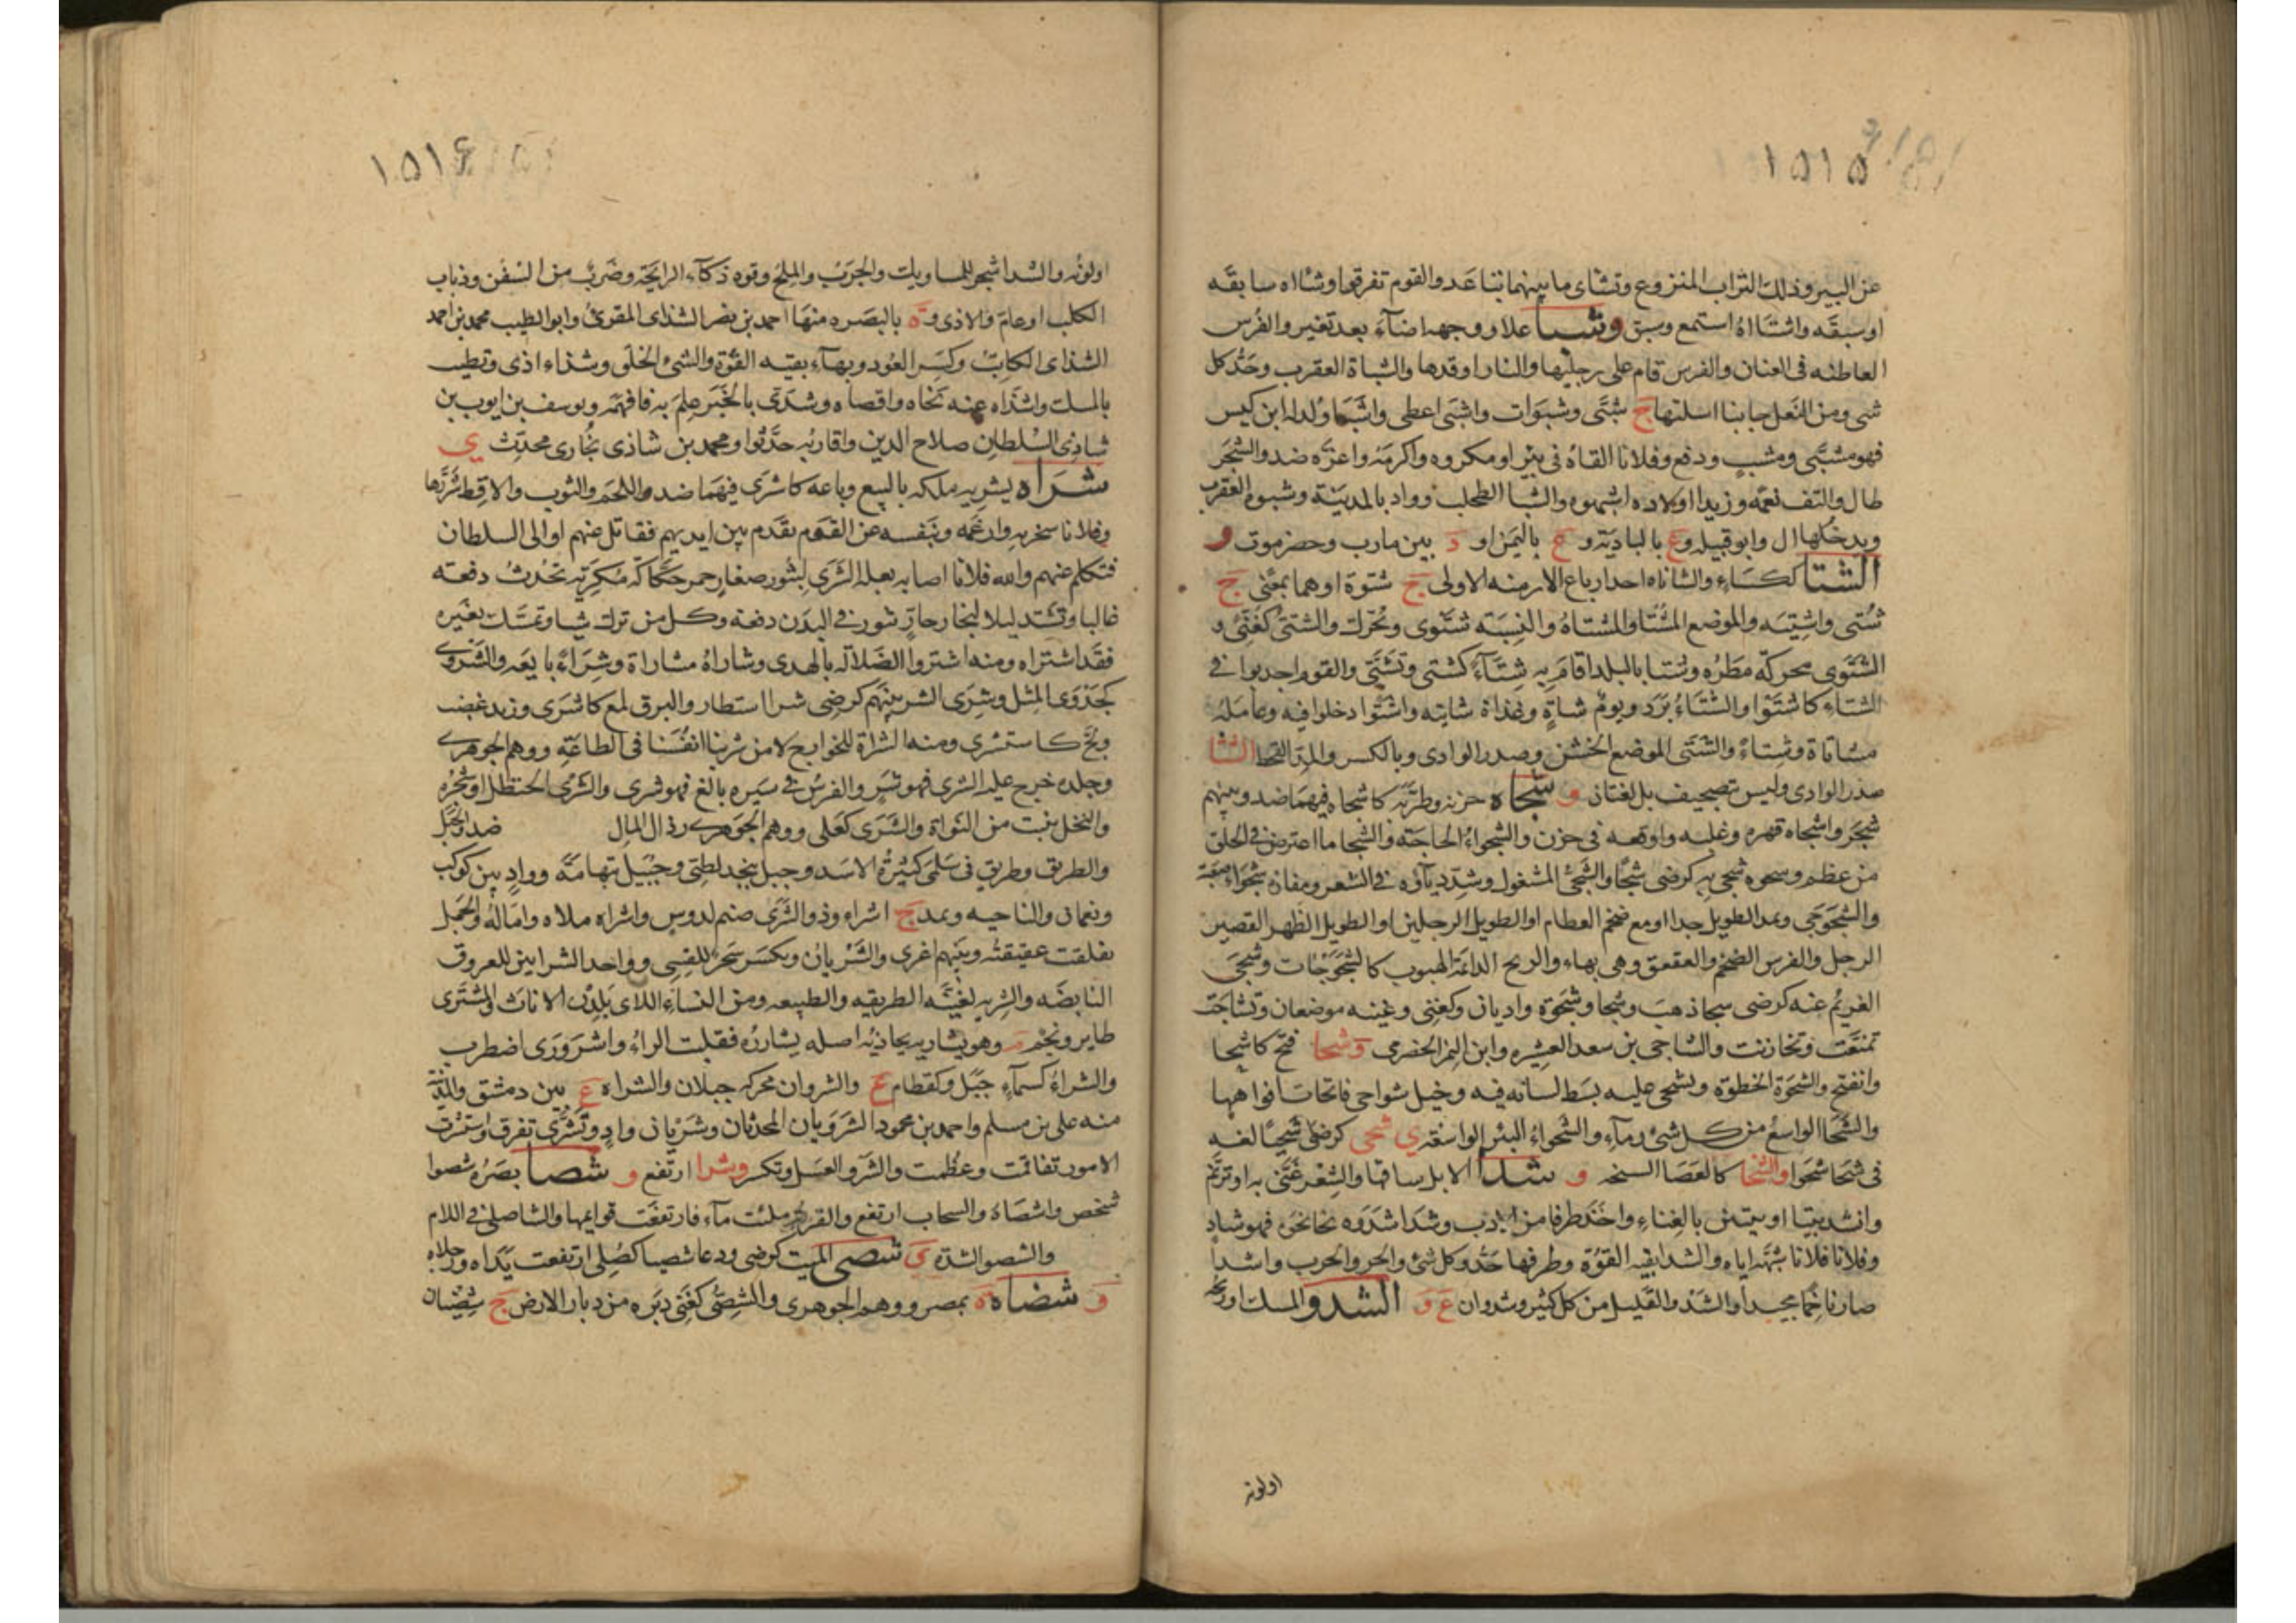 ١٥١٥
عن البير وذلك التراب المنزوع وتشاى ما بينهما تباعد والقوم تفرقوا وشااه سابقه
او سبقه واشتااه استمع وسبق وشبا علا ووجهه اضآء بعد تغير والفرس
العاطنه فى العنان والفرس قام على رجليها والنار اوقدها والشباة العقرب وحَدُّ كل
شى ومن النعل جانبا اسلتها ج شبَّى وشبوَات واشبى اعطى واشبَا وُلد له ابن كيس
فهو مشبَّى ومشبٍ ودفع وفلانا القاهُ فى بيرٍ او مكروه واكرمَهُ واعزَّه ضد والشجَر
طال والتف نعمَه وزيدا اولاده اشبهوه والشبا الطحلب وواد بالمدينَة وشبوة العقرب
ويدخلها ال وابو قبيله وع بالباديَة و ع باليَمَن او د بين مارب وحضرموت و
الشتا ككسَاءٍ والشاتاه احد ارباع الازمنه الاولى ج شتوَة او هما بمعنًى ج
شُتى واشتِيَه والموضع المشتا والمشتاهُ والنسبَه شتَوى ويُحَرك والشتىّ كغَنىّ و
الشتَوى محركةً مطَرُه وشتا بالبلد اقامَ به شِتَآءً كشتى وتشَتَّى والقوم اجدبوا فى
الشتاءِ كاشتَوْا والشتَاءُ بَرَد ويومٌ شاتٍ وغداة شاتيه واشتَوا دخلوا فيه وعامَلهُ
مشاتاة وشِتاءً والشَتى الموضع الخشن وصدر الوادى وبالكسر والمد القحط الشثا
صدر الوادى وليس تصحيف بل لغتان و شجاه حزنه وطرَّبَه كاشجاه فيهمَا ضد وبينهم
شجَر واشجاه قهره وغلبه واوقعه فى حزن والشجواءُ الحاجَته والشجا ما اعترض فى الحلق
من عظم ونحوه شجى به كرضى شجًا والشجىُّ المشغول وشدّد ياؤه فى الشعر ومفازة شجوَاء صعبَة
والشجَوجى ويمد الطويل جدا او مع ضخم العظام او الطويل الرجلين او الطويل الظهر القصير
الرجل والفرس الضخم والعقعق وهى بهاء والريح الدائمة الهبوب كالشجَوْجَات وشجى
الغريم عنه كرضى شجا ذهبَ وشجا وشجوَة واديان وكغنى وغنيه موضعان وتشاجَت
تمنعَّت وتحازنت والشاجى بن سعد العشيره وابن النمر الحضرمى و شحا فتح كاشحا
وانفتح والشحوَة الخطوَة وتشحى عليه بسَط لسانه فيه وخيل شواحى فاتحات افواهها
والشحَا الواسع من كل شئ وماء والشحواءُ البئر الواسعَة ى شحى كرضى شحيًا لغه
فى شحَا شحوا والشخا كالعصَا السبخه و شدا الابل ساقها والشعر غنَّى به او ترنَّم
وانشد بيتا او بيتين بالغِناءِ واخذ طرفا من الادب وشدَا شدَوه نحا نحوَه فهو شادٍ
وفلانا فلانا شبَّهه اياه والشدا بقيه القوَّة وطرفها حَدُّ وكل شئ والحر والجرب واشدا
صار ناخما مجيدا والشذو القليل من كل كثير وشدوان ع و الشذو المسك او ريحه
اولونه
١٥١٤
اولونُه والشذا شجر للمساويك والجرَبُ والمِلح وقوه ذكآء الرايحَة وضَربٌ من السُفُن وذباب
الكلب او عامّ والاذى وة بالبصَره منهَا احمد بن نصر الشذاى المقرئ وابو الطيب محمد بن احمد
الشذاى الكاتبُ وكسَر العُود وبهآء بقيه القوَّة والشئ الخلَق وشذاء اذى وتطيب
بالمسك واشذَاه عنه نحَّاه واقصاه وشدَى بالخبَر علِمَ به فافهمَه ويوسف بن ايوب بن
شاذى السُلطان صلاح الدين واقاربه حدَّثوا ومحمد بن شاذى بُخارى محدِّث ى
شرَاه يشريه ملكه بالبيع وباعه كاشرَى فيهمَا ضد واللحم والثوب والاقِط شرَّرَها
وفلانا سخر به وارغمَه وبنَفسه عن القوَم تقدَّم بين ايديهم فقاتل عنهم او الى السلطان
فتكلم عنهم والله فلانا اصابه بعلة الشَرَى لبثور صغار حمر حكَّاكَه مُكَرِّبَه تحدُثُ دفعَه
غالبا وتشتد ليلا لبخار حارّ يثور فى البدَن دفعة وكل من ترك شيا وتمسَّك بغيره
فقَد اشتراه ومنه اشتروا الضلاله بالهدى وشاراهُ مشاراة وشِرَاءً بايعَه والشَروَى
كجَدْوَى المِثل وشَرِى الشر بينَهم كرضى شرا استطار والبرق لمع كاشرَى وزيد غضب
ولجَّ كاستشرى ومنه الشراة للخوارج لا من شرينا انفُسَنا فى الطاعَةِ ووهم الجوهرى
وجلده خرج عليه الشرى فهو شَرٍ والفرسُ فى سَيره بالغ فهو شرى والشَرىُ الحنظل او شجَره
والنخل ينبت من النَواة والشَرَى كعَلى ووهم الجَوهرى رذال المال ضد والجَبَل
والطريق وطريق فى سَلمَى كثيرَةُ الاسَد وجبل بنجد لطئ وجبَيل بتهامَة ووادٍ بين كوكب
ونعمان والناحيه ويمد ج اشراء وذو الشَرَى صنم لدوسٍ واشراه ملاه وامَالهُ والجَمل
تفلقت عقيقتُه وبينَهم اغرى والشَرْيان ويكسَر شجَر للقِسِى وواحد الشرايين للعروق
النابضَه والشريه كغنيَّه الطريقه والطبيعه ومن النساءِ اللاى يَلِدْنَ الاناث والمشترَى
طاير ونجم م وهو يشاريه يجادله اصله يشاررُه فقلبت الراءُ واشرَورَى اضطرب
والشراءُ كسمآءٍ جبَل وكقطام ع والشروان محركه جبلان والشراه ع بين دمشق والمدينَة
منه على بن مسلم واحمد بن محمود الشرَوِيان المحدثان وشَرْيان وادٍ وتشرَّى تفرق واستشرَت
الامور تفاقمَت وعظمت والشَرو العسَل ويكسر وشرا ارتفع و شصا بصَرُه شصوا
شخص واشصَاهُ والسحاب ارتفع والقربَة ملئت مآء فارتفعَت قوايمها والشاصلى فى اللام
والشصو الشدَّة ى شصى الميت كرضى ودعا شصيا كصُلى ارتفعت يَدَاه ورجلاه
و شضاه ة بمصر ووهم الجوهرى والشصِّى كغَنى دَبَره من دبار الارض ج شِصْيان